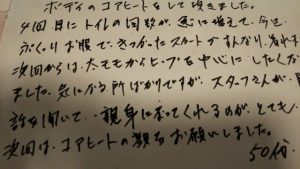 ボディのコアヒートをして頂きました。
4回目にトイレの回数が急に増えて、今迄
ぷくりお腹で、きつかったスカートがすんなり、着れま
次回からは、太モモからヒップを中心にしたくな
ました。気になる所ばかりですが、スタッフさんが
話を聞いて、親身になってくれるのが、とても
次回は、コアヒートの数をお願いしました。
50代